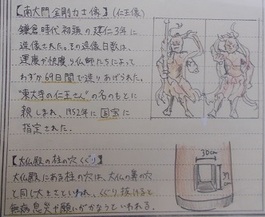 【南大門金剛力士像】(仁王像)
鎌倉時代初頭の建仁3年に
造像された。その造像日数は、
運慶や快慶ら仏師たちによって
わずか69日間で造りあげられた。
"東大寺の仁王さん"の名のもとに
親しまれ、1952年に国宝に
指定された。
【大仏殿の柱の穴くぐり】
大仏殿にある柱の穴は、大仏の鼻の穴
と同じ大きさといわれ、くぐり抜けると
無病息災や願いがかなうといわれる。
30cm